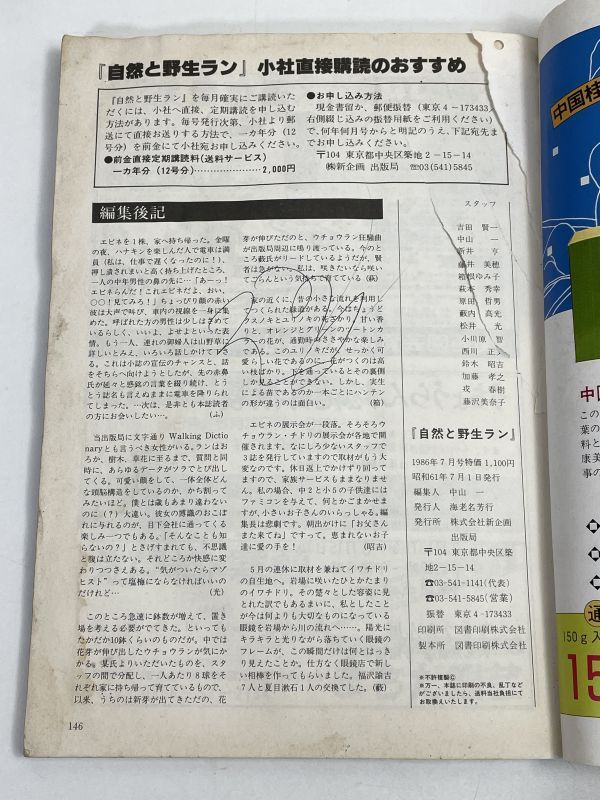 『自然と野生ラン』小社直接購読のおすすめ
『自然と野生ラン』を毎月確実にご購読いた
だくには、小社へ直接、定期購読を申し込む
方法があります。毎号発行次第、小社より郵
送にて直接お送りする方法で、一カ年分（12
号分）を前金にて小社宛お申し込みください。
●前金直接定期購読料（送料サービス）
一カ年分（12号分）…………………2,000円
●お申し込み方法
現金書留か、郵便振替（東京4－173433、
右側綴じ込みの振替用紙をご利用ください）
で、何年何月号からと明記のうえ、下記宛先ま
でお申し込みください。
〒104 東京都中央区築地2－15－14
㈱新企画 出版局 ☎03(541)5845
編集後記
エビネを1株、家へ持ち帰った。金曜
の夜、ハナキンを楽しんだ人で電車は満
員（私は、仕事で遅くなったのに！）、
押し潰されまいと高く持ち上げたところ、
一人の中年男性の鼻の先に…「あーっ！
エビネらんだ！これエビネだよ、おい、
○○！見てみろ！」ちょっぴり顔の赤い
彼は大声で叫び、車内の視線を一身に集
めた。呼ばれた方の男性は少しはずめて
いるらしく、いいよ、よせよといった表
情。もう一人、連れの御婦人は山野草に
詳しいとみえ、いろいろ話しかけて下さ
る。これは小誌の宣伝のチャンスと、話
をそちらへ向けようとしたが、先の赤鼻
氏が延々と感銘の言葉を綴り続け、とう
とう誌名も言えぬままに電車を降りられ
てしまった。…次は、是非とも本誌読者
の方にお会いしたい…。（ふ）
当出版局に文字通り Walking Dictio
naryとも言うべき女性がいる。ランはお
ろか、樹木、草花に至るまで、質問と同
時に、あらゆるデータがソラでとび出し
てくる。可愛い顔をして、一体全体どん
な頭脳構造をしているのか、から割って
みたいほど。僕とは歳もあまり違わない
のに（？）大違い。彼女の博識のおこぼ
れに与れるのが、目下会社に通ってくる
楽しみ一つでもある。「そんなことも知
らないの？」とさげすまれても、不思議
と腹は立たない。それどころか快感に変
わりつつさえある。“気がついたらマゾ
ヒスト”って塩梅にならなければいいの
だけれど… （光）
このところ急速に鉢数が増えて、置き
場を考える必要がでてきた。といっても
たかだか10鉢くらいのものだが。中では
花芽が伸びだしたウチョウランが気にか
かる。某氏よりいただいたものを、スタ
ッフの間で分配し、一人あたり8球をそ
れぞれ家に持ち帰って育てているもので、
以来、うちのは新芽が出てきただの、花
芽が伸びただのと、ウチョウラン狂騒曲
が出版局周辺に鳴り渡っている。今のと
ころ藪氏がリードしているようだが、賢
者は急がない。私は、咲きたいなら咲い
てごらんという気持ちで育てている（萩）
家の近くに、昔の小さな流れを利用し
てつくられた緑道がある。今はちょうど
クスノキとユリノキの花ざかり。甘い香
りと、オレンジとグリーンのツートンカ
ラーの花が、通勤時のささやかな楽しみ
である。このユリノキだが、せっかく可
愛らしい花であるのに、花がつくのは高
い枝ばかり。下を通っているとその裏側
しか見ることができない。しかし、実生
による苗であるのか一本ごとにハンテン
の形が違うのは面白い。（箱）
エビネの展示会が一段落。そろそろウ
チョウラン・チドリの展示会が各地で開
催されます。なにしろ少ないスタッフで
3誌を発行していますので取材がもう大
変なのです。休日返上でかけずり回って
ますので、家族サービスもままなりませ
ん。私の場合、中2と小5の子供達には
ファミコンを与えて、何とかごまかせま
すが、小さいお子さんのいらっしゃる。編
集長は悲劇です。朝出がけに「お父さん
また来てね」ですって。恵まれないお子
達に愛の手を！ （昭吉）
5月の連休に取材を兼ねてイワチドリ
の自生地へ。岩場に咲いたひとかたまり
のイワチドリ。その楚々とした容姿に見
とれた訳でもあるまいに、私としたこと
が今は何よりも大切なものになっている
眼鏡を岩場から川の流れへ……。陽光に
キラキラと光りながら落ちていく眼鏡の
フレームが、この瞬間だけは何とはっき
り見えたことか。仕方なく眼鏡店で新し
い相棒を作ってもらいました。福沢諭吉
7人と夏目漱石1人の交換でした。（藪）
スタッフ
吉田 賢一
中山 一
新井 亨
藤井 美穂
箱根ゆみ子
萩本 秀幸
原田 哲男
藪内 高光
松井 光
小川原 智
西川 正
鈴木 昭吉
加藤 孝之
戎 春樹
藤沢美奈子
『自然と野生ラン』
1986年7月号特価1,100円
昭和61年7月1日発行
編集人 中山 一
発行人 海老名芳行
発行所 株式会社新企画
出版局
〒104 東京都中央区築
地2－15－14
☎03-541-1141（代表）
☎03-541-5845（営業）
振替 東京4-173433
印刷所 図書印刷株式会社
製本所 図書印刷株式会社
※不許複製©
※万一、本誌に印刷の不良、乱丁など
がございましたら、送料当社負担にて
お取換えいたします。
146
中国桂
中国
この
葉の
料と
康美
事の
通
150g入
15